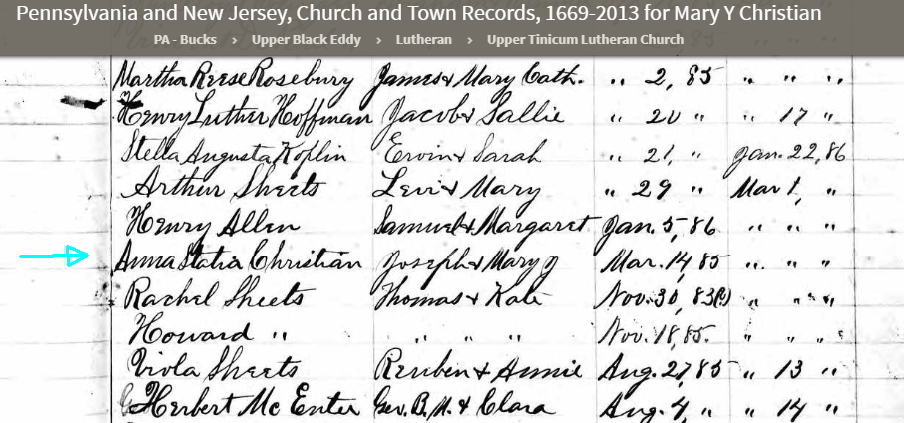 Pennsylvania and New Jersey, Church and Town Records, 1669-2013 for Mary Y Christian
PA - Bucks › Upper Black Eddy › Lutheran › Upper Tinicum Lutheran Church
Martha Reese Rosebury James & Mary Cath. " 2, 85 " " "
Henry Luther Hoffman Jacob & Sallie " 20 " " 17 "
Stella Augusta Koplin Ervin & Sarah " 21, " Jan. 22, 86
Arthur Sheets Levi & Mary " 29 " Mar 1, "
Henry Allen Samuel & Margaret Jan. 5, 86 " " "
Anna Statia Christian Joseph & Mary y Mar. 14, 85 " " "
Rachel Sheets Thomas & Kate Nov. 30, 83(?) " " "
Howard " " " " Nov. 18, 85. " " "
Viola Sheets Reuben & Annie Aug. 27, 85 " 13 "
G Herbert Mc Enter Geo. B. M. & Clara Aug. 4, " " 14 "